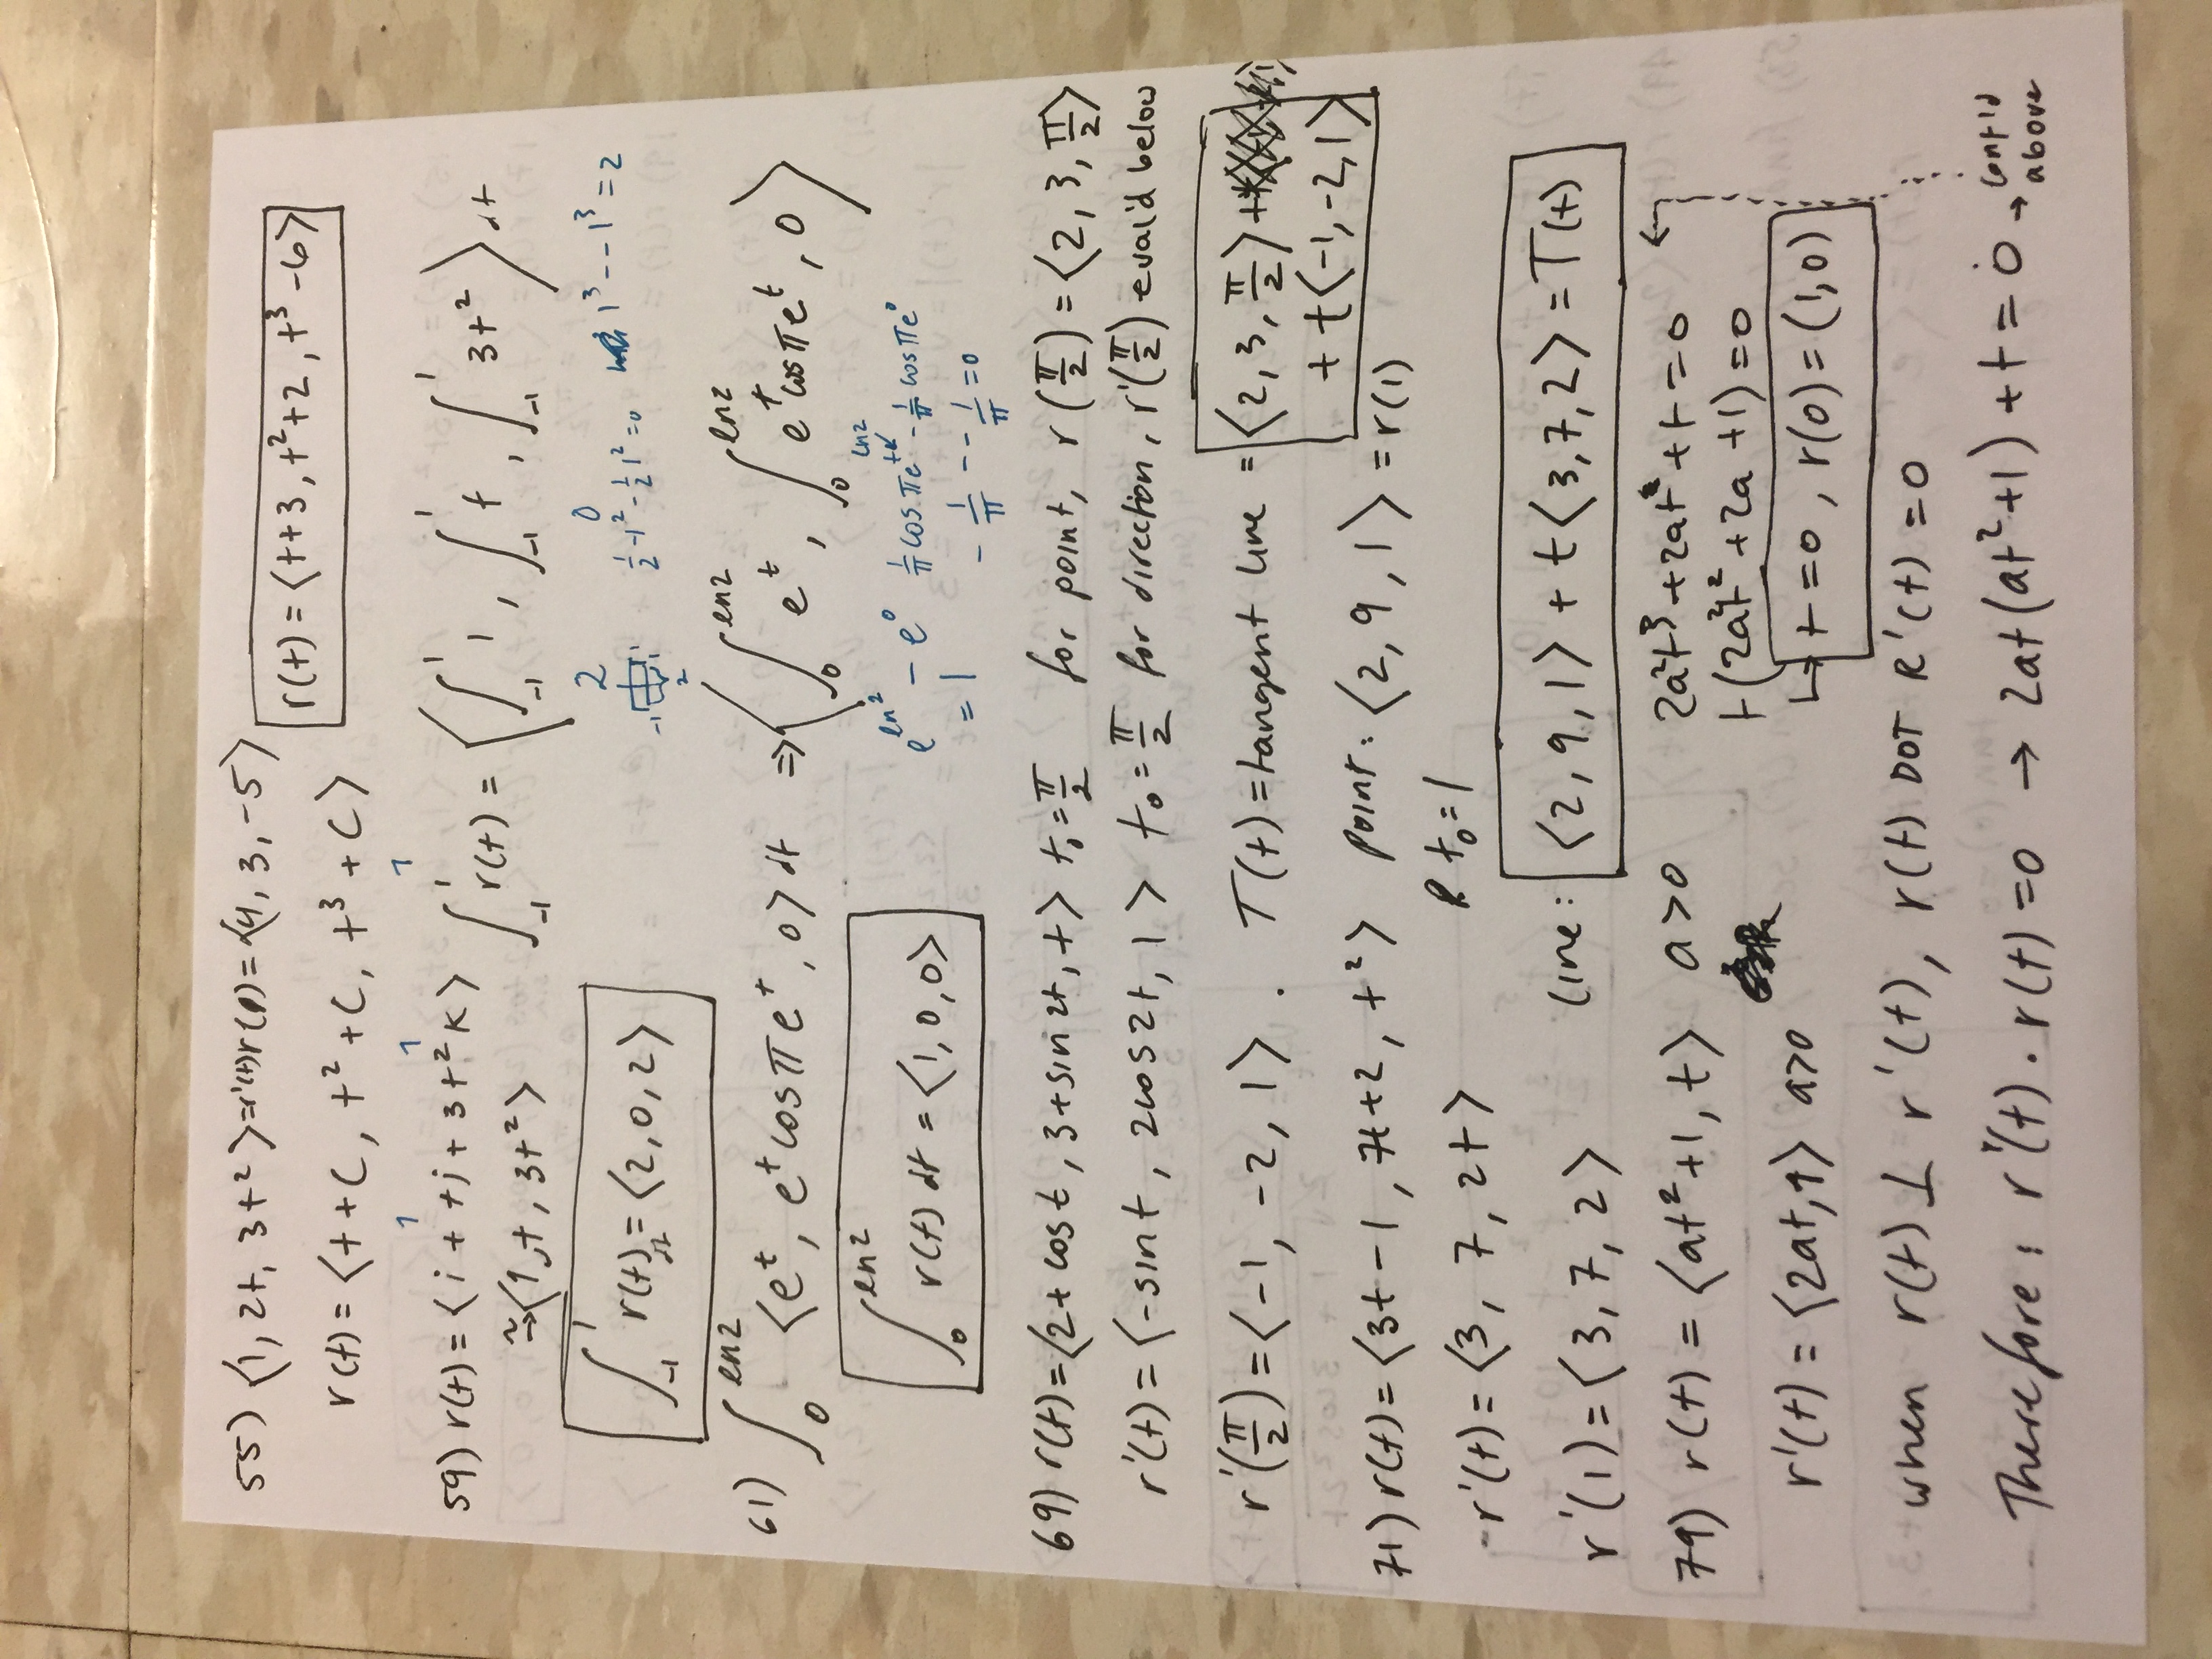 55) ⟨1, 2t, 3t²⟩ = r'(t) r(1) = ⟨4, 3, -5⟩
r(t) = ⟨t+3, t²+2, t³-6⟩
r(t) = ⟨t + C, t² + C, t³ + C⟩
1 1 1
59) r(t) = ⟨i + tj + 3t²k⟩ ∫₋₁¹ r(t) = ⟨∫₋₁¹ 1, ∫₋₁¹ t, ∫₋₁¹ 3t²⟩ dt
≈⟨1, t, 3t²⟩
2 0 1³ - -1³ = 2
-1 1 2 ½-1² - ½1² = 0
∫₋₁¹ r(t) dt = ⟨2, 0, 2⟩
61) ∫₀^ln2 ⟨e^t, e^t cos πe^t, 0⟩ dt ⇒ ⟨∫₀^ln2 e^t, ∫₀^ln2 e^t cos πe^t, 0⟩
∫₀^ln2 r(t) dt = ⟨1, 0, 0⟩
e^ln2 - e⁰ 1/π cos πe^t ↙ ln2 - 1/π cos πe⁰
= 1 -1/π - -1/π = 0
69) r(t) = ⟨2 + cos t, 3 + sin 2t, t⟩ t₀ = π/2 for point, r(π/2) = ⟨2, 3, π/2⟩
r'(t) = ⟨-sin t, 2cos2t, 1⟩ t₀ = π/2 for direction, r'(π/2) eval'd below
r'(π/2) = ⟨-1, -2, 1⟩. T(t) = tangent line = ⟨2, 3, π/2⟩ +
+ t⟨-1, -2, 1⟩
71) r(t) = ⟨3t - 1, 7t + 2, t²⟩ point: ⟨2, 9, 1⟩ = r(1)
t₀ = 1
r'(t) = ⟨3, 7, 2t⟩
r'(1) = ⟨3, 7, 2⟩ line: ⟨2, 9, 1⟩ + t⟨3, 7, 2⟩ = T(t)
79) r(t) = ⟨at² + 1, t⟩ a > 0
2a²t³ + 2at + t = 0 ←
t(2a²t² + 2a + 1) = 0
r'(t) = ⟨2at, 1⟩ a > 0
↳ t = 0, r(0) = (1, 0)
when r(t) ⊥ r'(t), r(t) DOT R'(t) = 0
Therefore: r'(t) · r(t) = 0 → 2at(at² + 1) + t = 0 → cont'd above